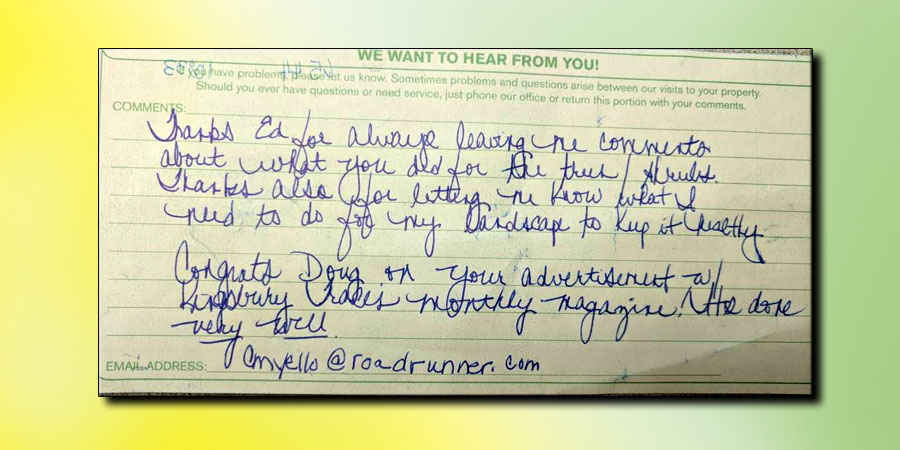 WE WANT TO HEAR FROM YOU!
If you have problems, please let us know. Sometimes problems and questions arise between our visits to your property.
Should you ever have questions or need service, just phone our office or return this portion with your comments.
COMMENTS:
Thanks Ed for always leaving me comments
about what you did for the trees/shrubs.
Thanks also for letting me know what I
need to do for my landscape to keep it healthy
Congrats Doug on your advertisement w/
Kingsbury monthly magazine! done
very well
EMAIL ADDRESS: cmyello@roadrunner.com